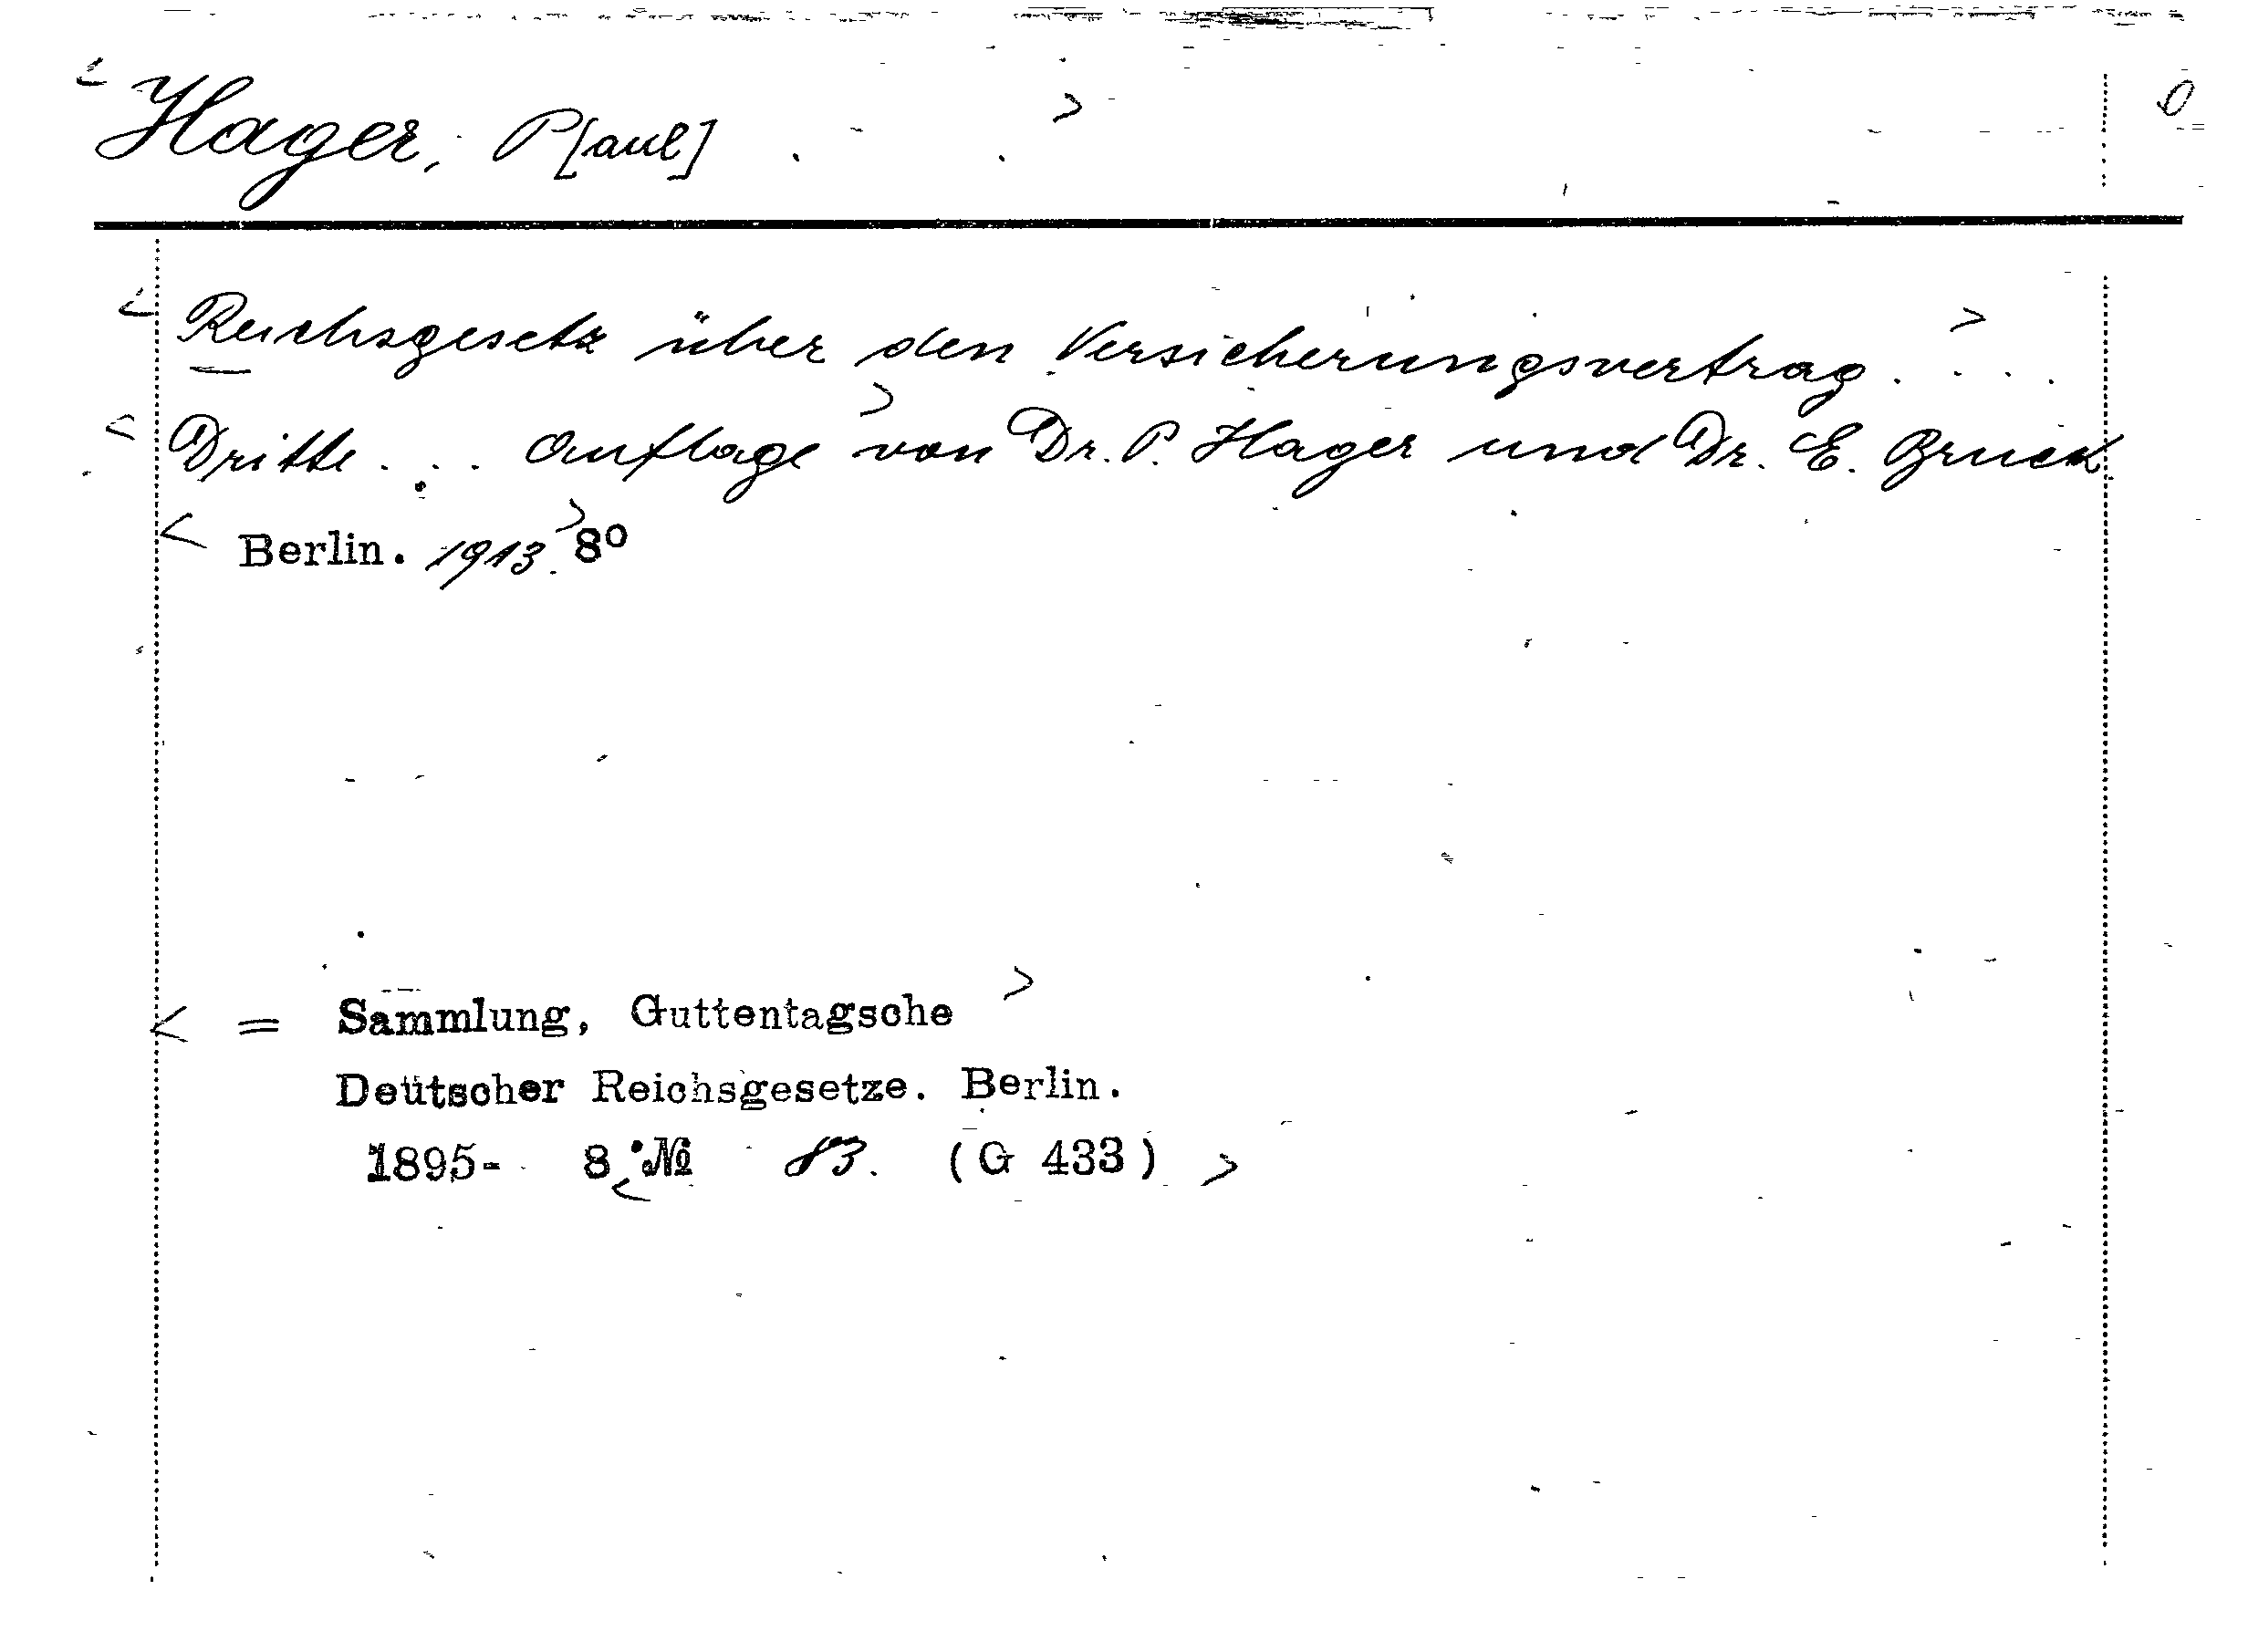 Hager, P[aul]
Reichsgesetz über den Versicherungsvertrag. ...
Dritte ... Auflage von Dr. P. Hager und Dr. E. Bruck.
Berlin. 1913. 8º
= Sammlung, Guttentagsche
Deutscher Reichsgesetze. Berlin.
1895- 8.º № 83. (G 433)